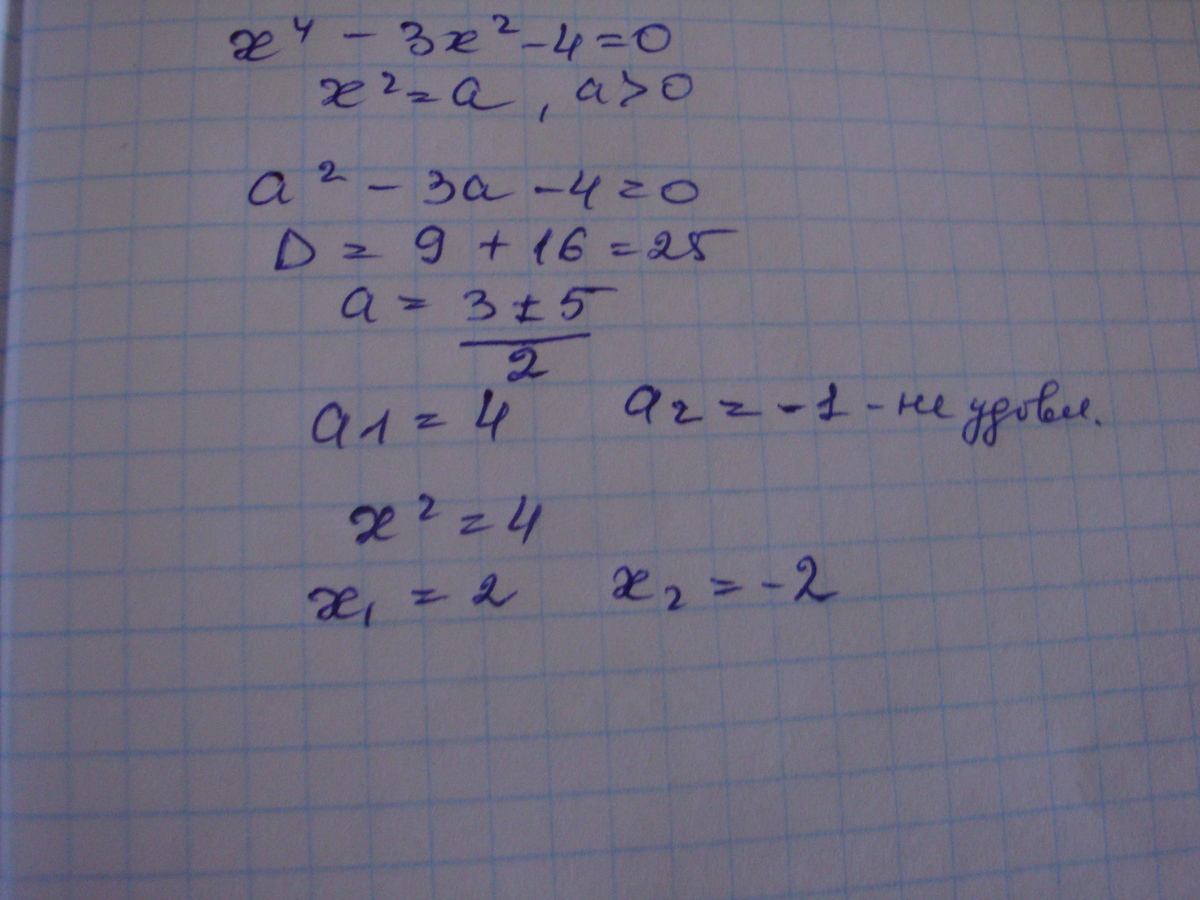 x⁴ - 3x² - 4 = 0
x² = a, a > 0
a² - 3a - 4 = 0
D = 9 + 16 = 25
a = (3 ± 5)/2
a1 = 4 a2 = -1 - не удовл.
x² = 4
x₁ = 2 x₂ = -2